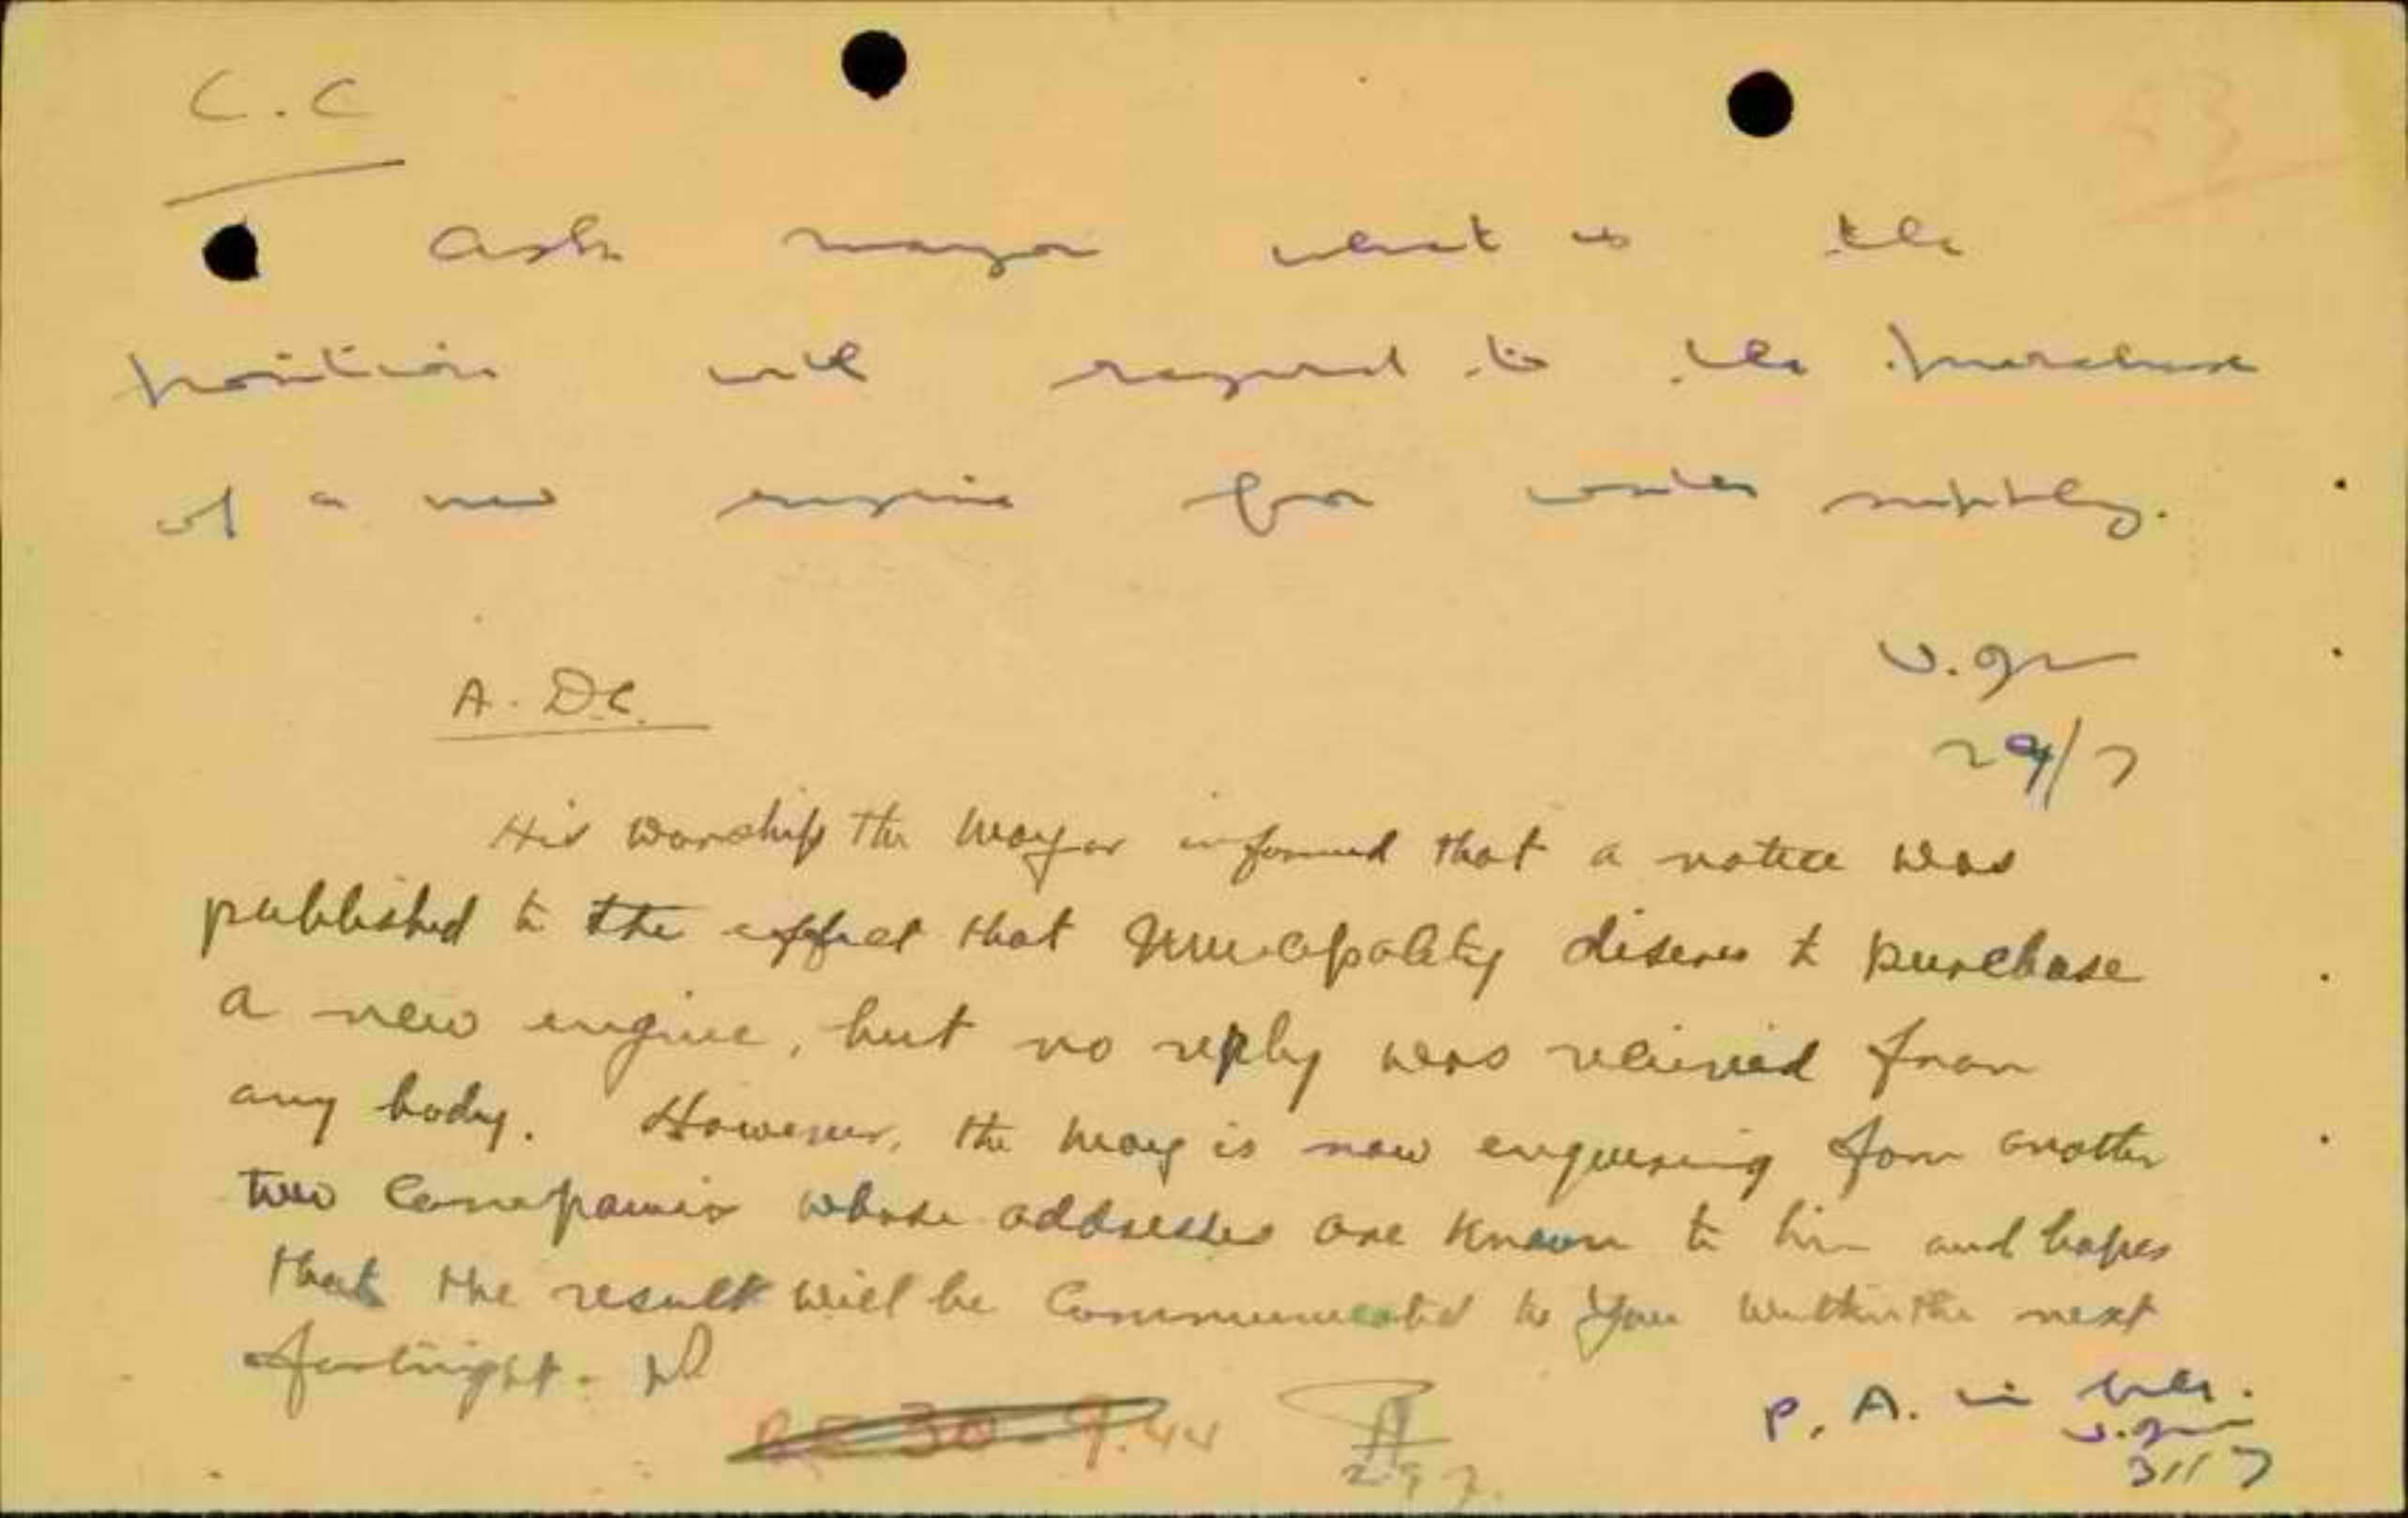 C.C
53
Ask mayor what is the
position with regard to the purchase
of a new engine for water supply.
29/7
A.D.C.
His Worship the Mayor informed that a notice was
published to the effect that Municipality disires to purchase
a new engine, but no reply was recieved from
any body. However, the Mayor is now enquiring from another
two Companies whose addresses are known to him and hopes
that the result will be Communicated to you within the next
fortnight.
30.9.44
P. A. in
29 7.
31/7